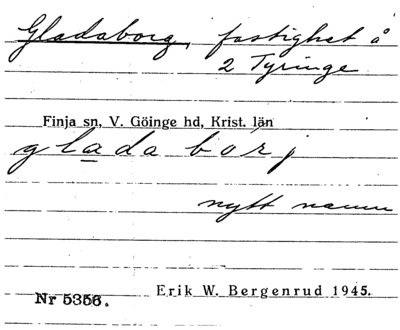 Gladaborg, fastighet å
2 Tyringe
Finja sn, V. Göinge hd, Krist. län
glada borj
nytt namn
Nr 5356. Erik W. Bergenrud 1945.